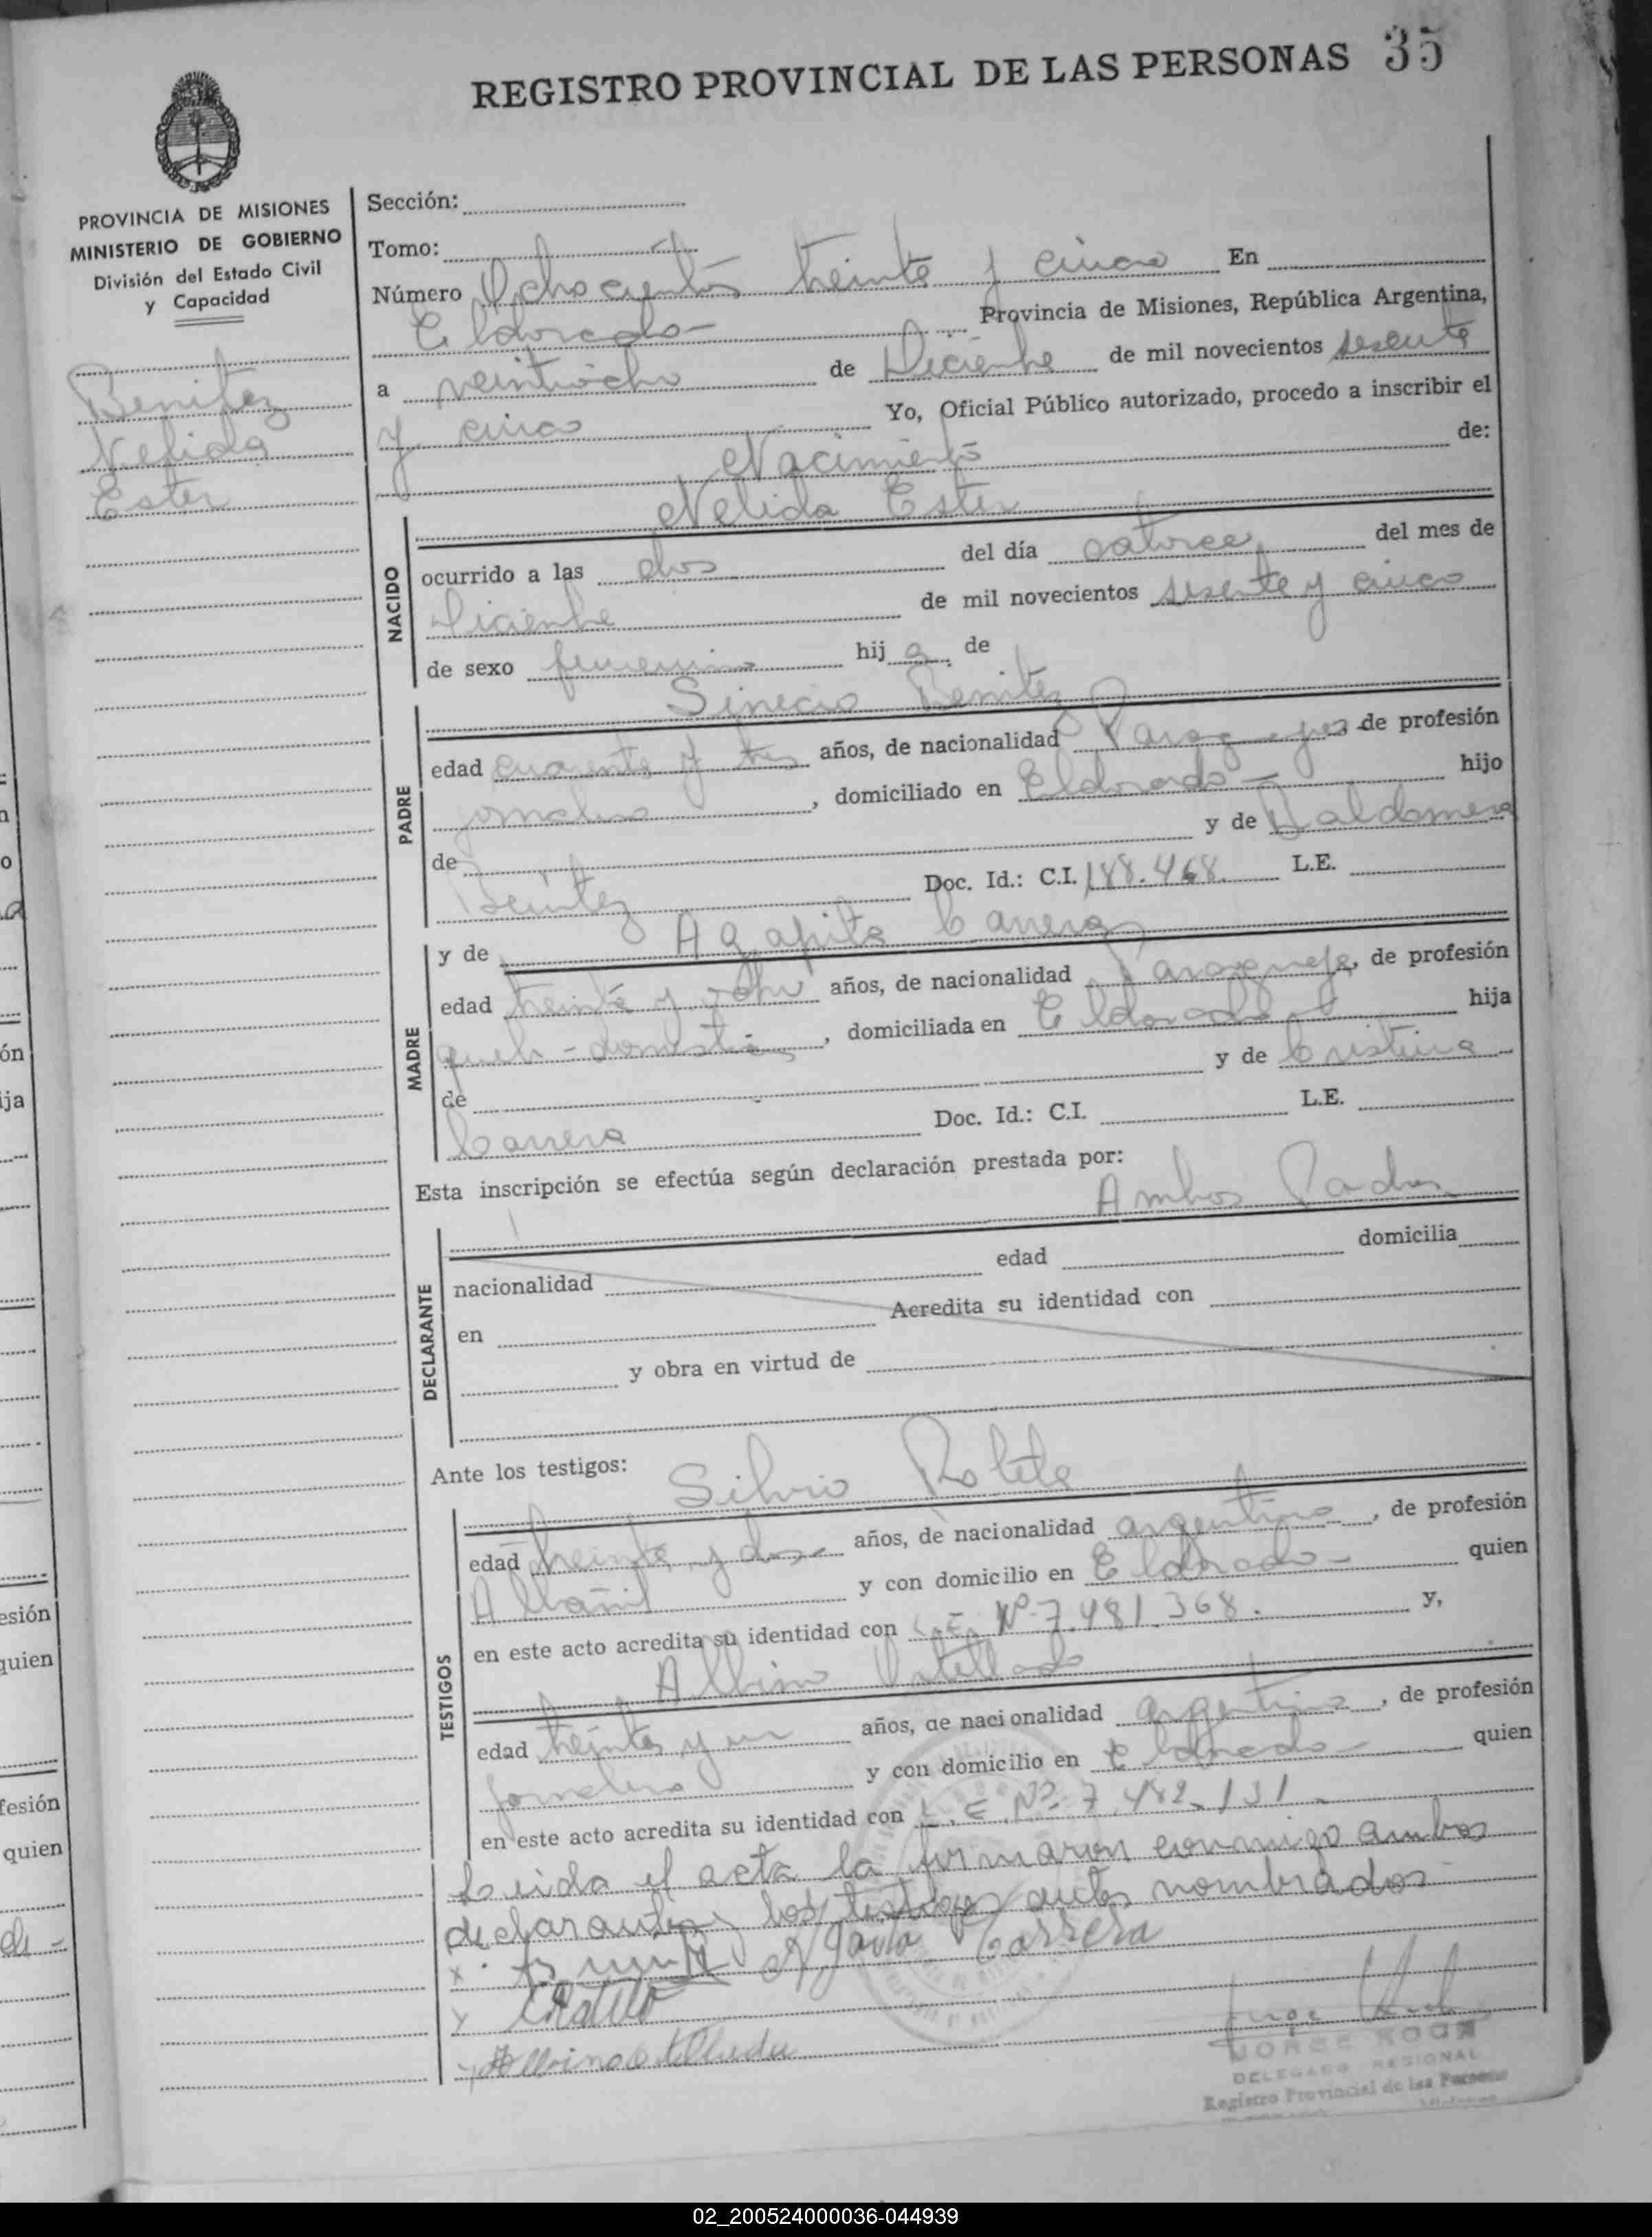 REGISTRO PROVINCIAL DE LAS PERSONAS 35
PROVINCIA DE MISIONES
MINISTERIO DE GOBIERNO
División del Estado Civil
y Capacidad
Benitez
Nelida
Ester
Sección:
Tomo:
Número Ochocientos treinta y cinco En
Eldorado- Provincia de Misiones, República Argentina,
a veintiocho de Diciembre de mil novecientos sesenta
y cinco Yo, Oficial Público autorizado, procedo a inscribir el
Nacimiento de:
Nelida Ester
NACIDO
ocurrido a las dos del día catorce del mes de
Diciembre de mil novecientos sesenta y cinco
de sexo femenino hija de
Sinecio Benitez
PADRE
edad cuarenta y tres años, de nacionalidad Paraguaya de profesión
jornalero, domiciliado en Eldorado- hijo
de y de Baldomera
Benitez Doc. Id.: C.I. 188.468. L.E.
MADRE
y de Agapita Carrera
edad treinta y ocho años, de nacionalidad Paraguaya, de profesión
queh-domesticos, domiciliada en Eldorado hija
de y de Cristina
Carrera Doc. Id.: C.I. L.E.
Esta inscripción se efectúa según declaración prestada por:
Ambos Padres
DECLARANTE
nacionalidad edad domicilia
en Acredita su identidad con
y obra en virtud de
Ante los testigos:
Silvio
TESTIGOS
edad treinta y dos- años, de nacionalidad argentino, de profesión
Albañil y con domicilio en Eldorado- quien
en este acto acredita su identidad con L.E. Nº 7.481.368. y,
Albino
edad treinta y un años, de nacionalidad argentino, de profesión
jornalero y con domicilio en Eldorado- quien
en este acto acredita su identidad con L.E. Nº 7.482.131.
Leida el acta la firmaron conmigo ambos
declarantes y los testigos antes nombrados
x Carrera
x
x Albino
JORGE KOCH
DELEGADO REGIONAL
Registro Provincial de las Personas
02_200524000036-044939